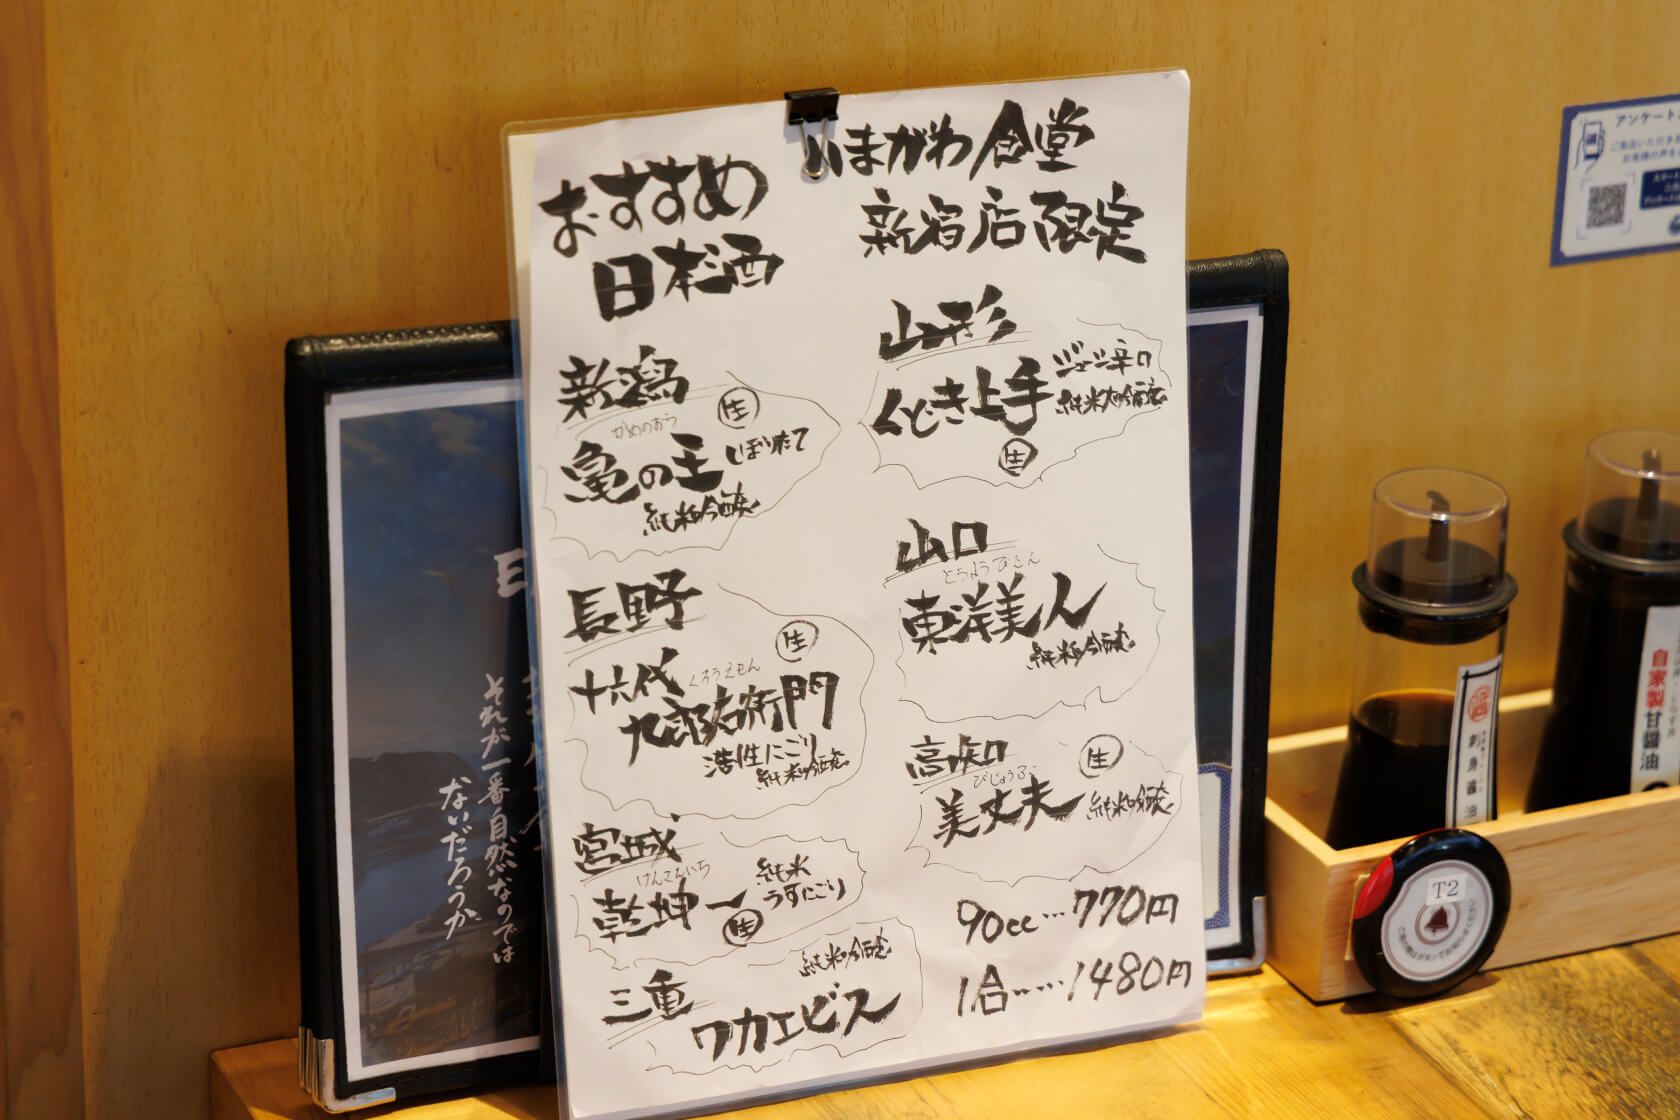 いまがわ食堂
新宿店限定
おすすめ
日本酒
新潟
生
かめのおう
亀の王 しぼりたて
純米吟醸
長野
生
十六代
くろうえもん
九郎右衛門
活性にごり
純米吟醸
宮城
けんこんいち
乾坤一
純米
うすにごり
生
三重
純米吟醸
ワカエビス
山形
くどき上手
ジューシー辛口
純米大吟醸
生
山口
とうようびじん
東洋美人
純米吟醸
高知
生
びじょうふ
美丈夫
純米吟醸
90cc…770円
1合……1480円
それが一番自然なのでは
ないだろうか
アンケート
ご来店いただき
お客様の声を
刺身醤油
自家製甘醤油
T2